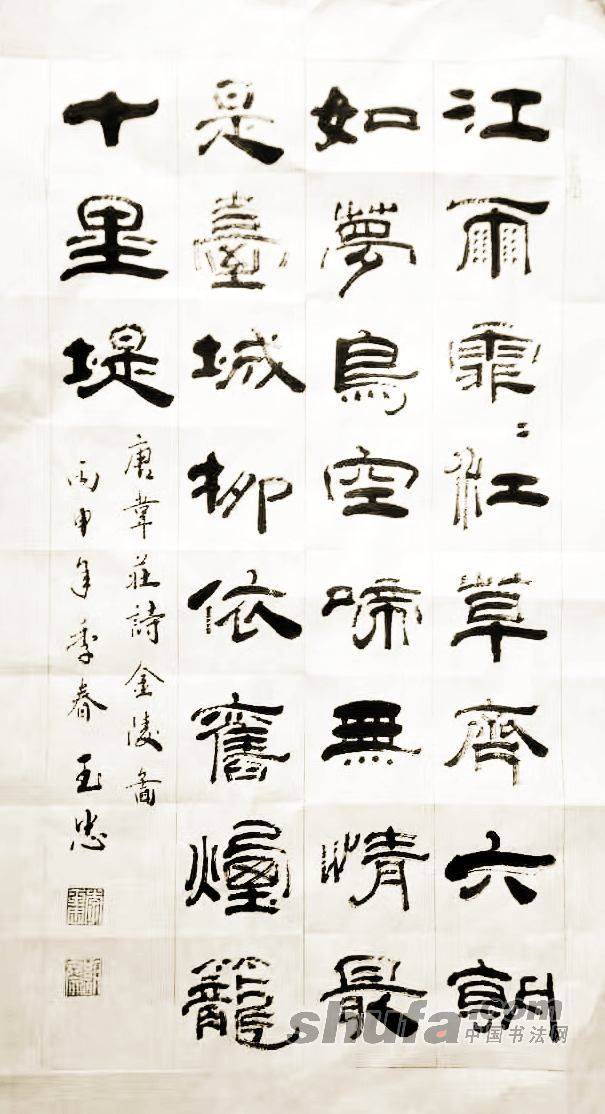 江雨霏〻江草齊六朝
如夢鳥空啼無情最
是臺城柳依舊煙籠
十里堤
唐韋莊詩金陵圖
丙申年季春玉忠
shufa.com
中国书法网